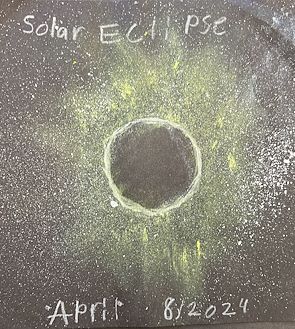 Solar EClipse
April 8/2024